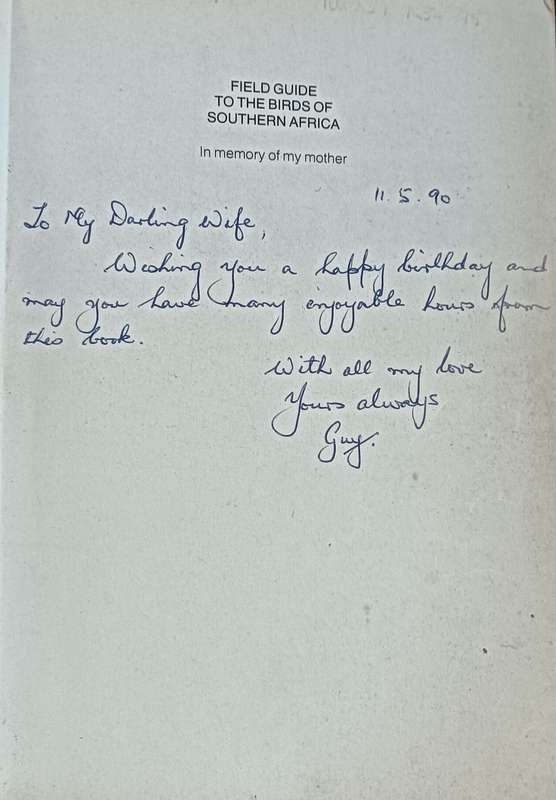 FIELD GUIDE
TO THE BIRDS OF
SOUTHERN AFRICA
In memory of my mother
11.5.90
To My Darling Wife,
Wishing you a happy birthday and
may you have many enjoyable hours from
this book.
With all my love
Yours always
Guy.